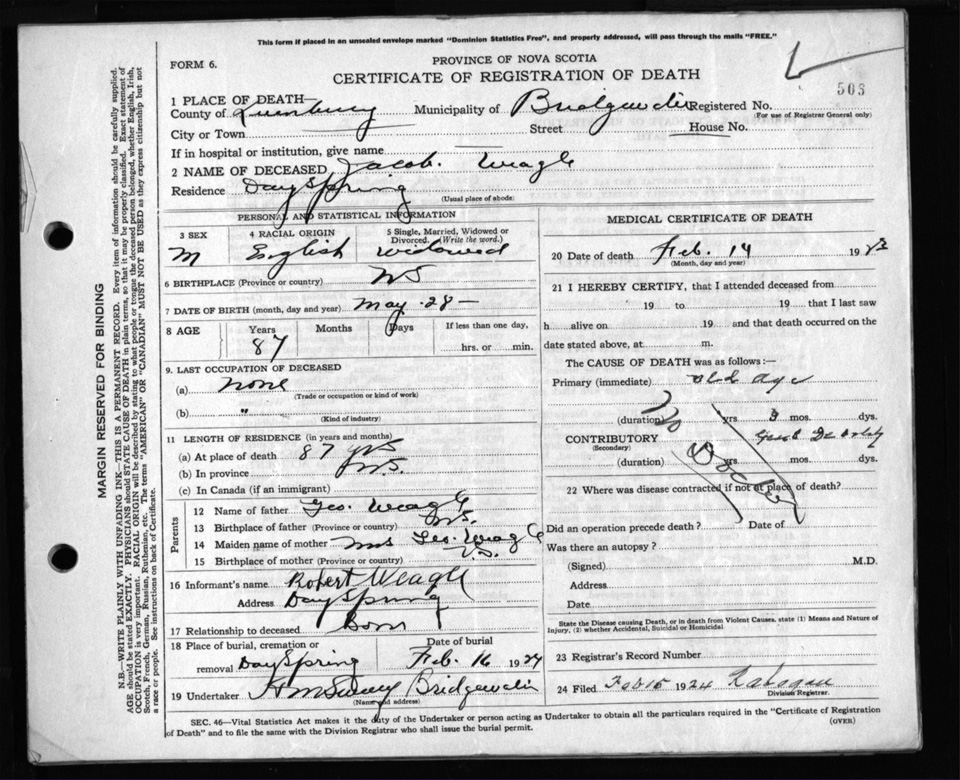 This form if placed in an unsealed envelope marked "Dominion Statistics Free", and properly addressed, will pass through the mails "FREE."
FORM 6.
PROVINCE OF NOVA SCOTIA
CERTIFICATE OF REGISTRATION OF DEATH
503
1 PLACE OF DEATH—
County of Lunenburg Municipality of Bridgewater Registered No.
(For use of Registrar General only)
City or Town Street House No.
If in hospital or institution, give name
2 NAME OF DECEASED Jacob. Weagle
Residence DaySpring
(Usual place of abode)
PERSONAL AND STATISTICAL INFORMATION
3 SEX 4 RACIAL ORIGIN 5 Single, Married, Widowed or Divorced. (Write the word.)
M English Widowed
6 BIRTHPLACE (Province or country) NS
7 DATE OF BIRTH (month, day and year) May 28 —
8 AGE Years Months Days If less than one day,
87 hrs. or min.
9. LAST OCCUPATION OF DECEASED
(a) none
(Trade or occupation or kind of work)
(b) "
(Kind of industry)
11 LENGTH OF RESIDENCE (in years and months)
(a) At place of death 87 yrs
(b) In province NS.
(c) In Canada (if an immigrant)
Parents
12 Name of father Geo. Weagle
13 Birthplace of father (Province or country) NS.
14 Maiden name of mother Mrs Geo. Weagle
15 Birthplace of mother (Province or country)
16 Informant's name Robert Weagle
Address DaySpring
17 Relationship to deceased Son
18 Place of burial, cremation or removal DaySpring Date of burial Feb. 16 1924
19 Undertaker Bridgewater
(Name and address)
MEDICAL CERTIFICATE OF DEATH
20 Date of death Feb. 14 192
(Month, day and year)
21 I HEREBY CERTIFY, that I attended deceased from
19 to 19 that I last saw
h alive on 19 and that death occurred on the
date stated above, at m.
The CAUSE OF DEATH was as follows:—
Primary (immediate) old age
(duration) yrs 3 mos. dys.
CONTRIBUTORY
(Secondary)
(duration) yrs. mos. dys.
No Doctor
22 Where was disease contracted if not at place of death?
Did an operation precede death? Date of
Was there an autopsy?
(Signed) M.D.
Address
Date
State the Disease causing Death, or in death from Violent Causes, state (1) Means and Nature of Injury, (2) whether Accidental, Suicidal or Homicidal.
23 Registrar's Record Number
24 Filed Feb 15 1924
Division Registrar.
SEC. 46—Vital Statistics Act makes it the duty of the Undertaker or person acting as Undertaker to obtain all the particulars required in the "Certificate of Registration
of Death" and to file the same with the Division Registrar who shall issue the burial permit. (OVER)
MARGIN RESERVED FOR BINDING
N.B.—WRITE PLAINLY WITH UNFADING INK—THIS IS A PERMANENT RECORD. Every item of information should be carefully supplied.
AGE should be stated EXACTLY. PHYSICIANS should STATE CAUSE OF DEATH in plain terms, so that it may be properly classified. Exact statement of
OCCUPATION is very important. RACIAL ORIGIN will be described by stating to what people or tongue the deceased person belonged, whether English, Irish,
Scotch, French, German, Russian, Ruthenian, etc. The terms "AMERICAN" OR "CANADIAN" MUST NOT BE USED as they express citizenship but not
a race or people. See instructions on back of Certificate.